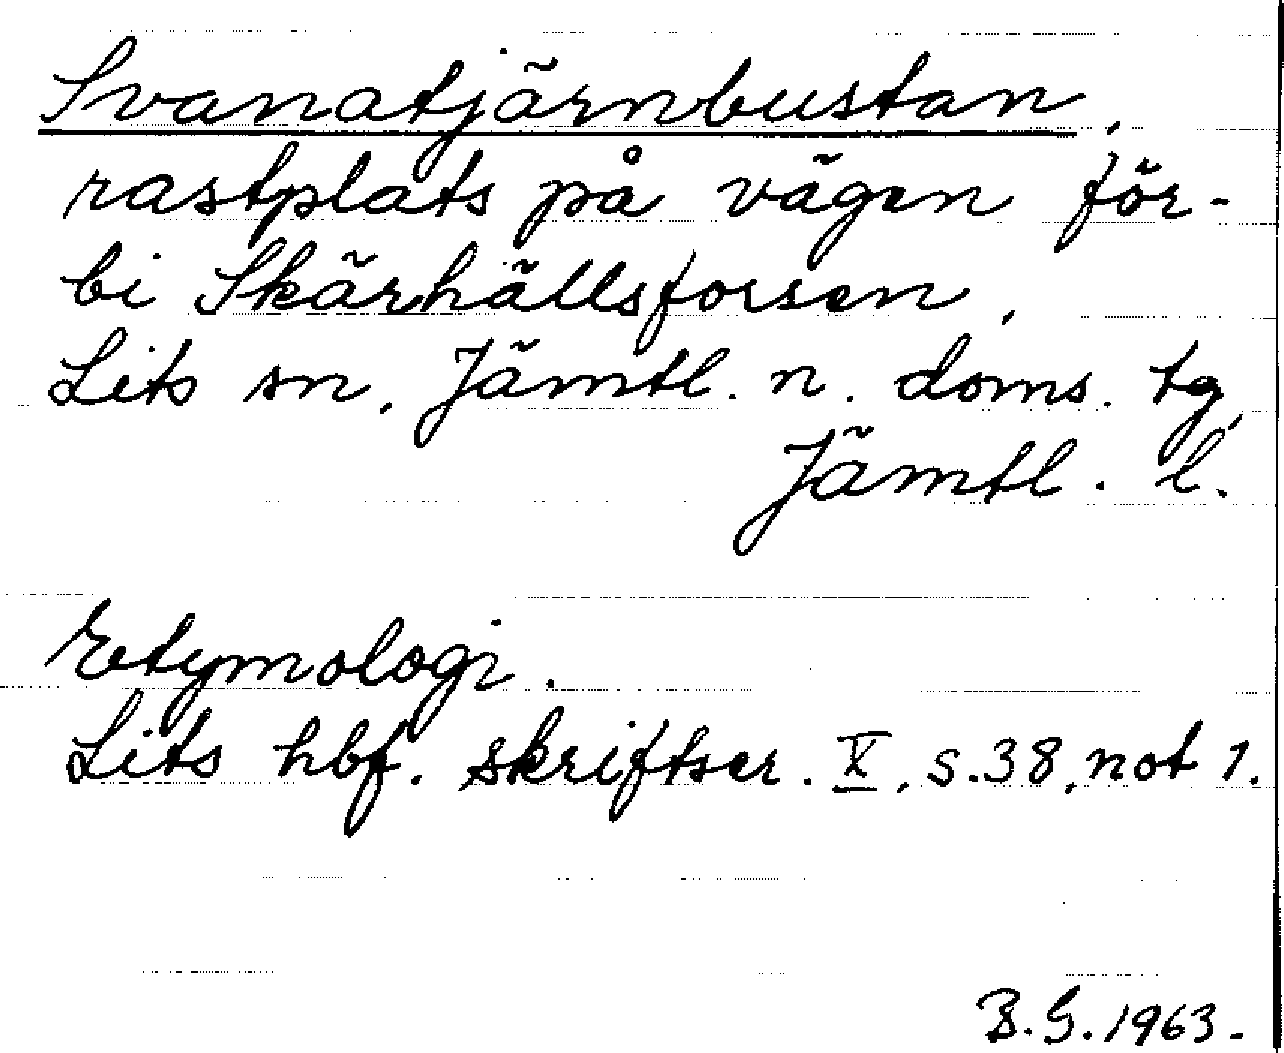 Svanatjärnbustan,
rastplats på vägen för-
bi Skärhällsforsen,
Lits sn, Jämtl. n. doms. tg,
Jämtl. l.
Etymologi.
Lits hbf. skriftser. X, s. 38, not 1.
B.G. 1963.